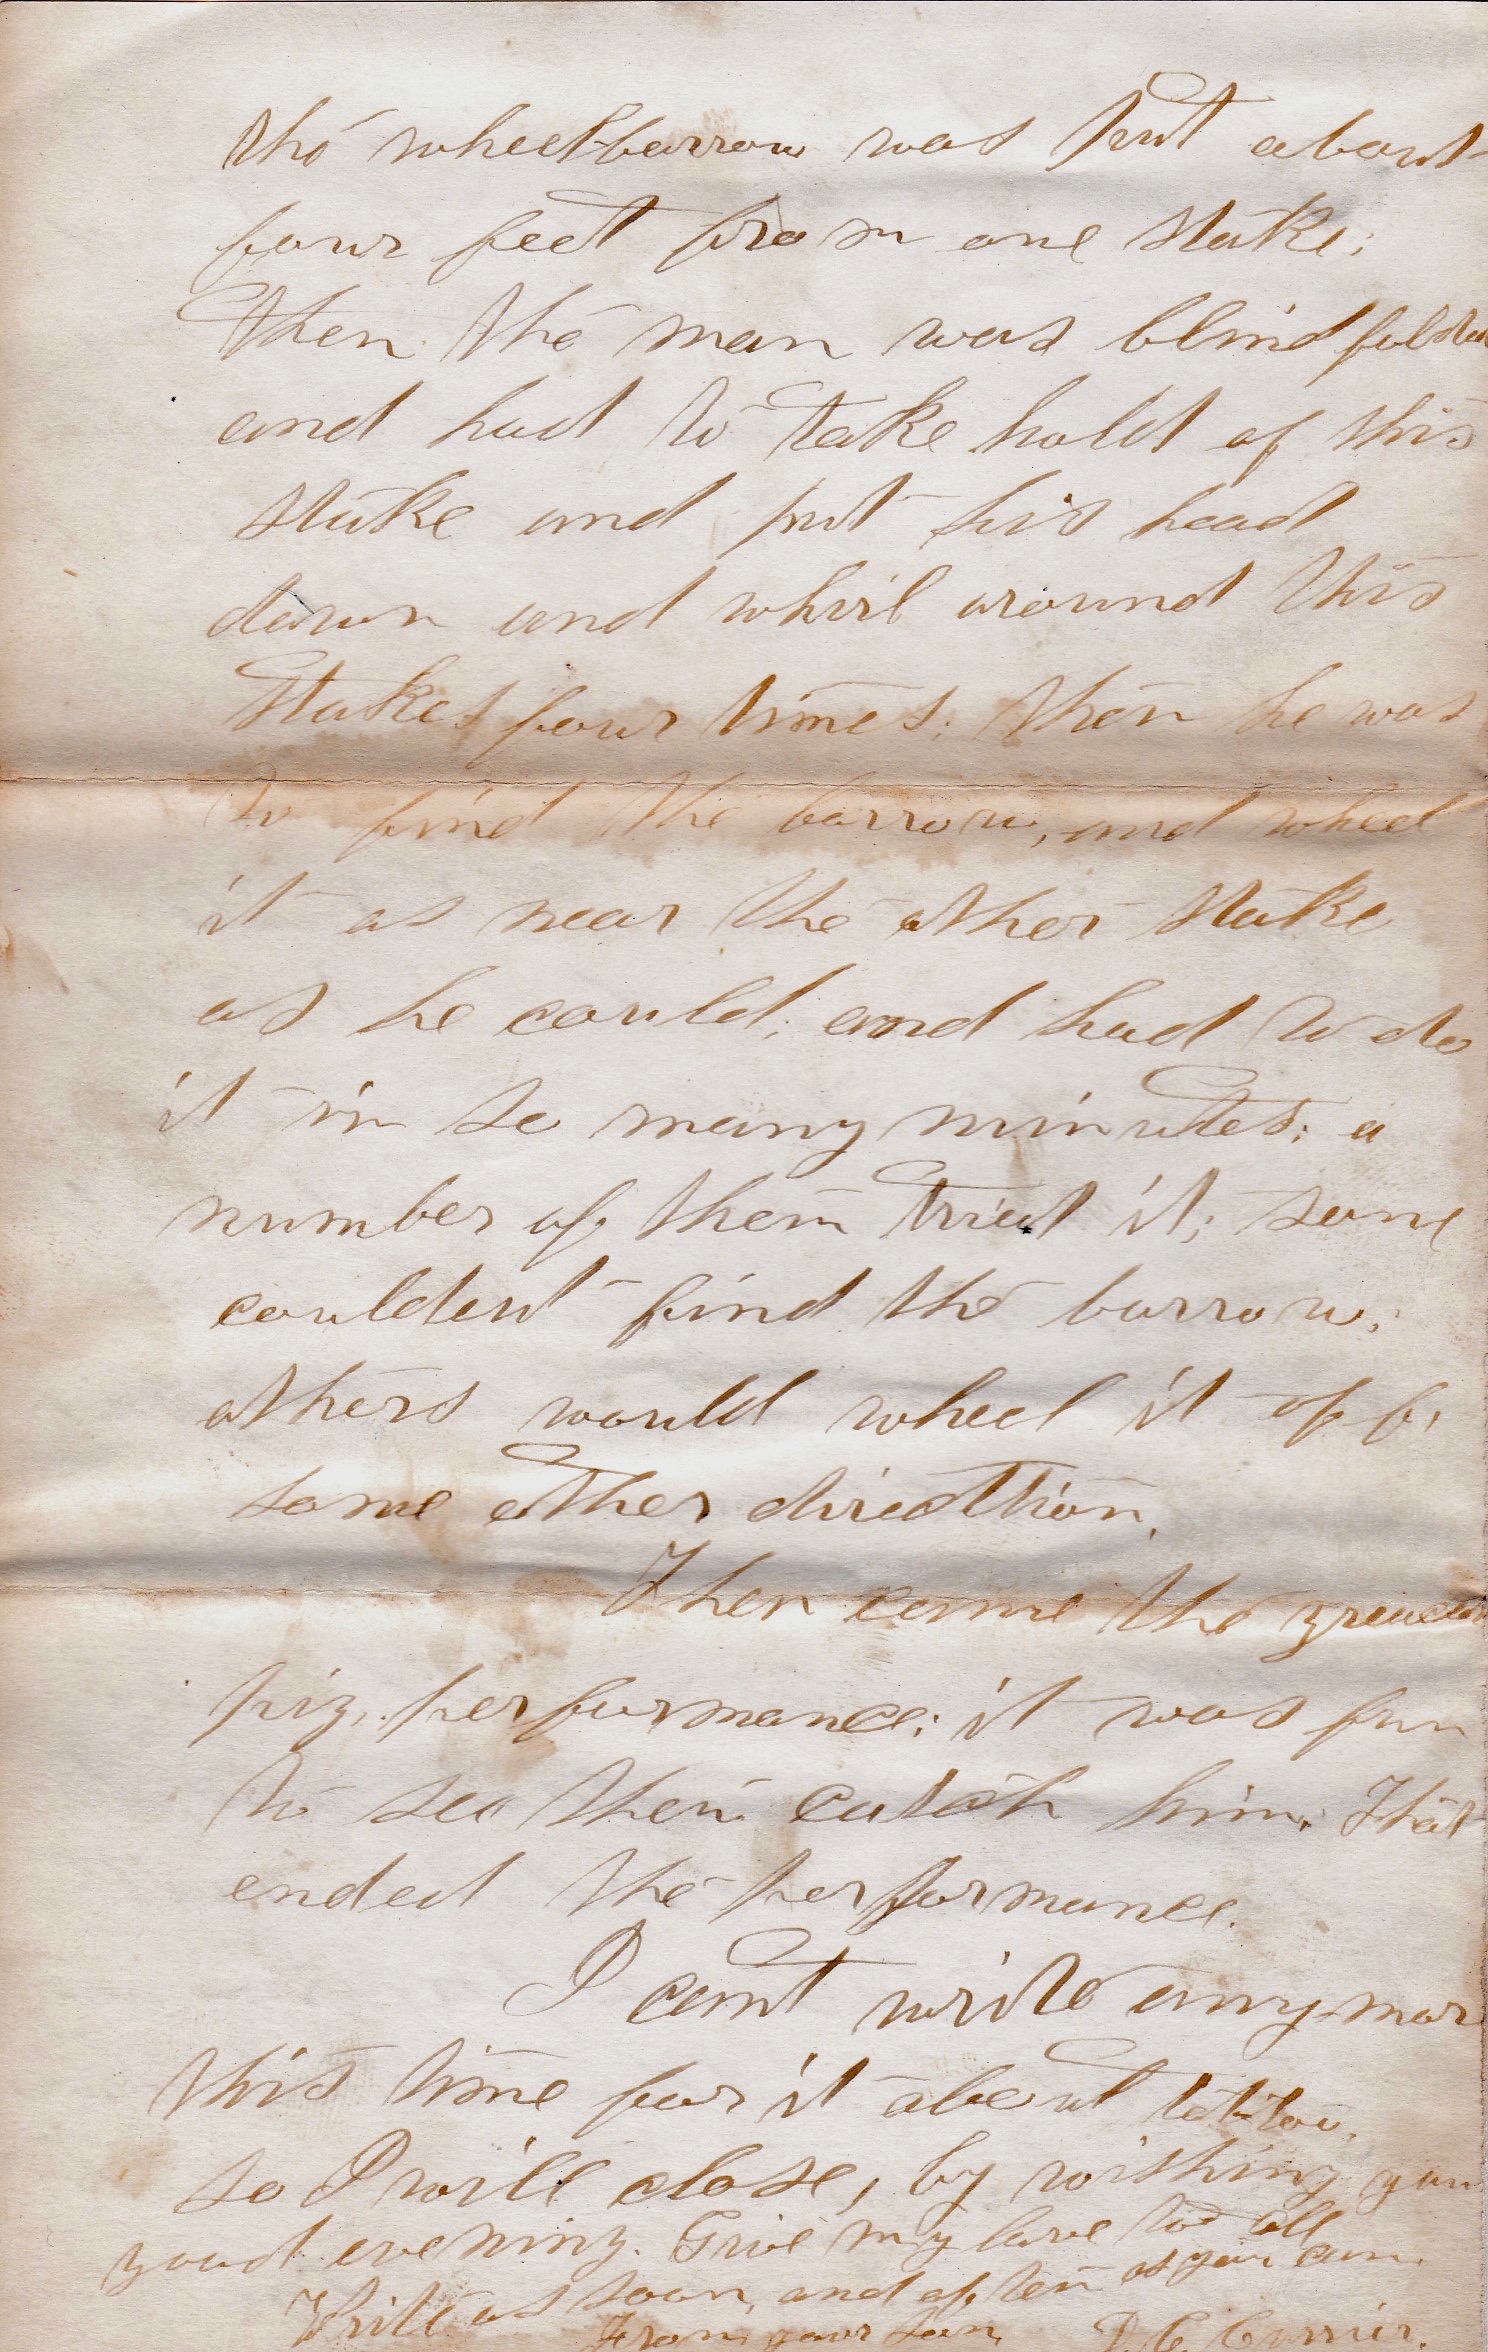 the wheel-barrow was put about
four feet from one stake;
then the man was blind folded
and had to take hold of this
stake and put his head
down and whirl around this
stake four times; then he was
to find the barrow, and wheel
it as near the other stake
as he could; and had to do
it in so many minutes; a
number of them tried it; some
couldent find the barrow;
others would wheel it off,
some other directtion.
Then came the greaced
pig, performance; it was fun
to see them catch him; That
ended the performance.
I cant write any mor
this time for it about tattoo,
so I will close, by wishing you
good evening. Give my love to all
Write as soon, and often as you can.
From your Son, D. C. Currier.